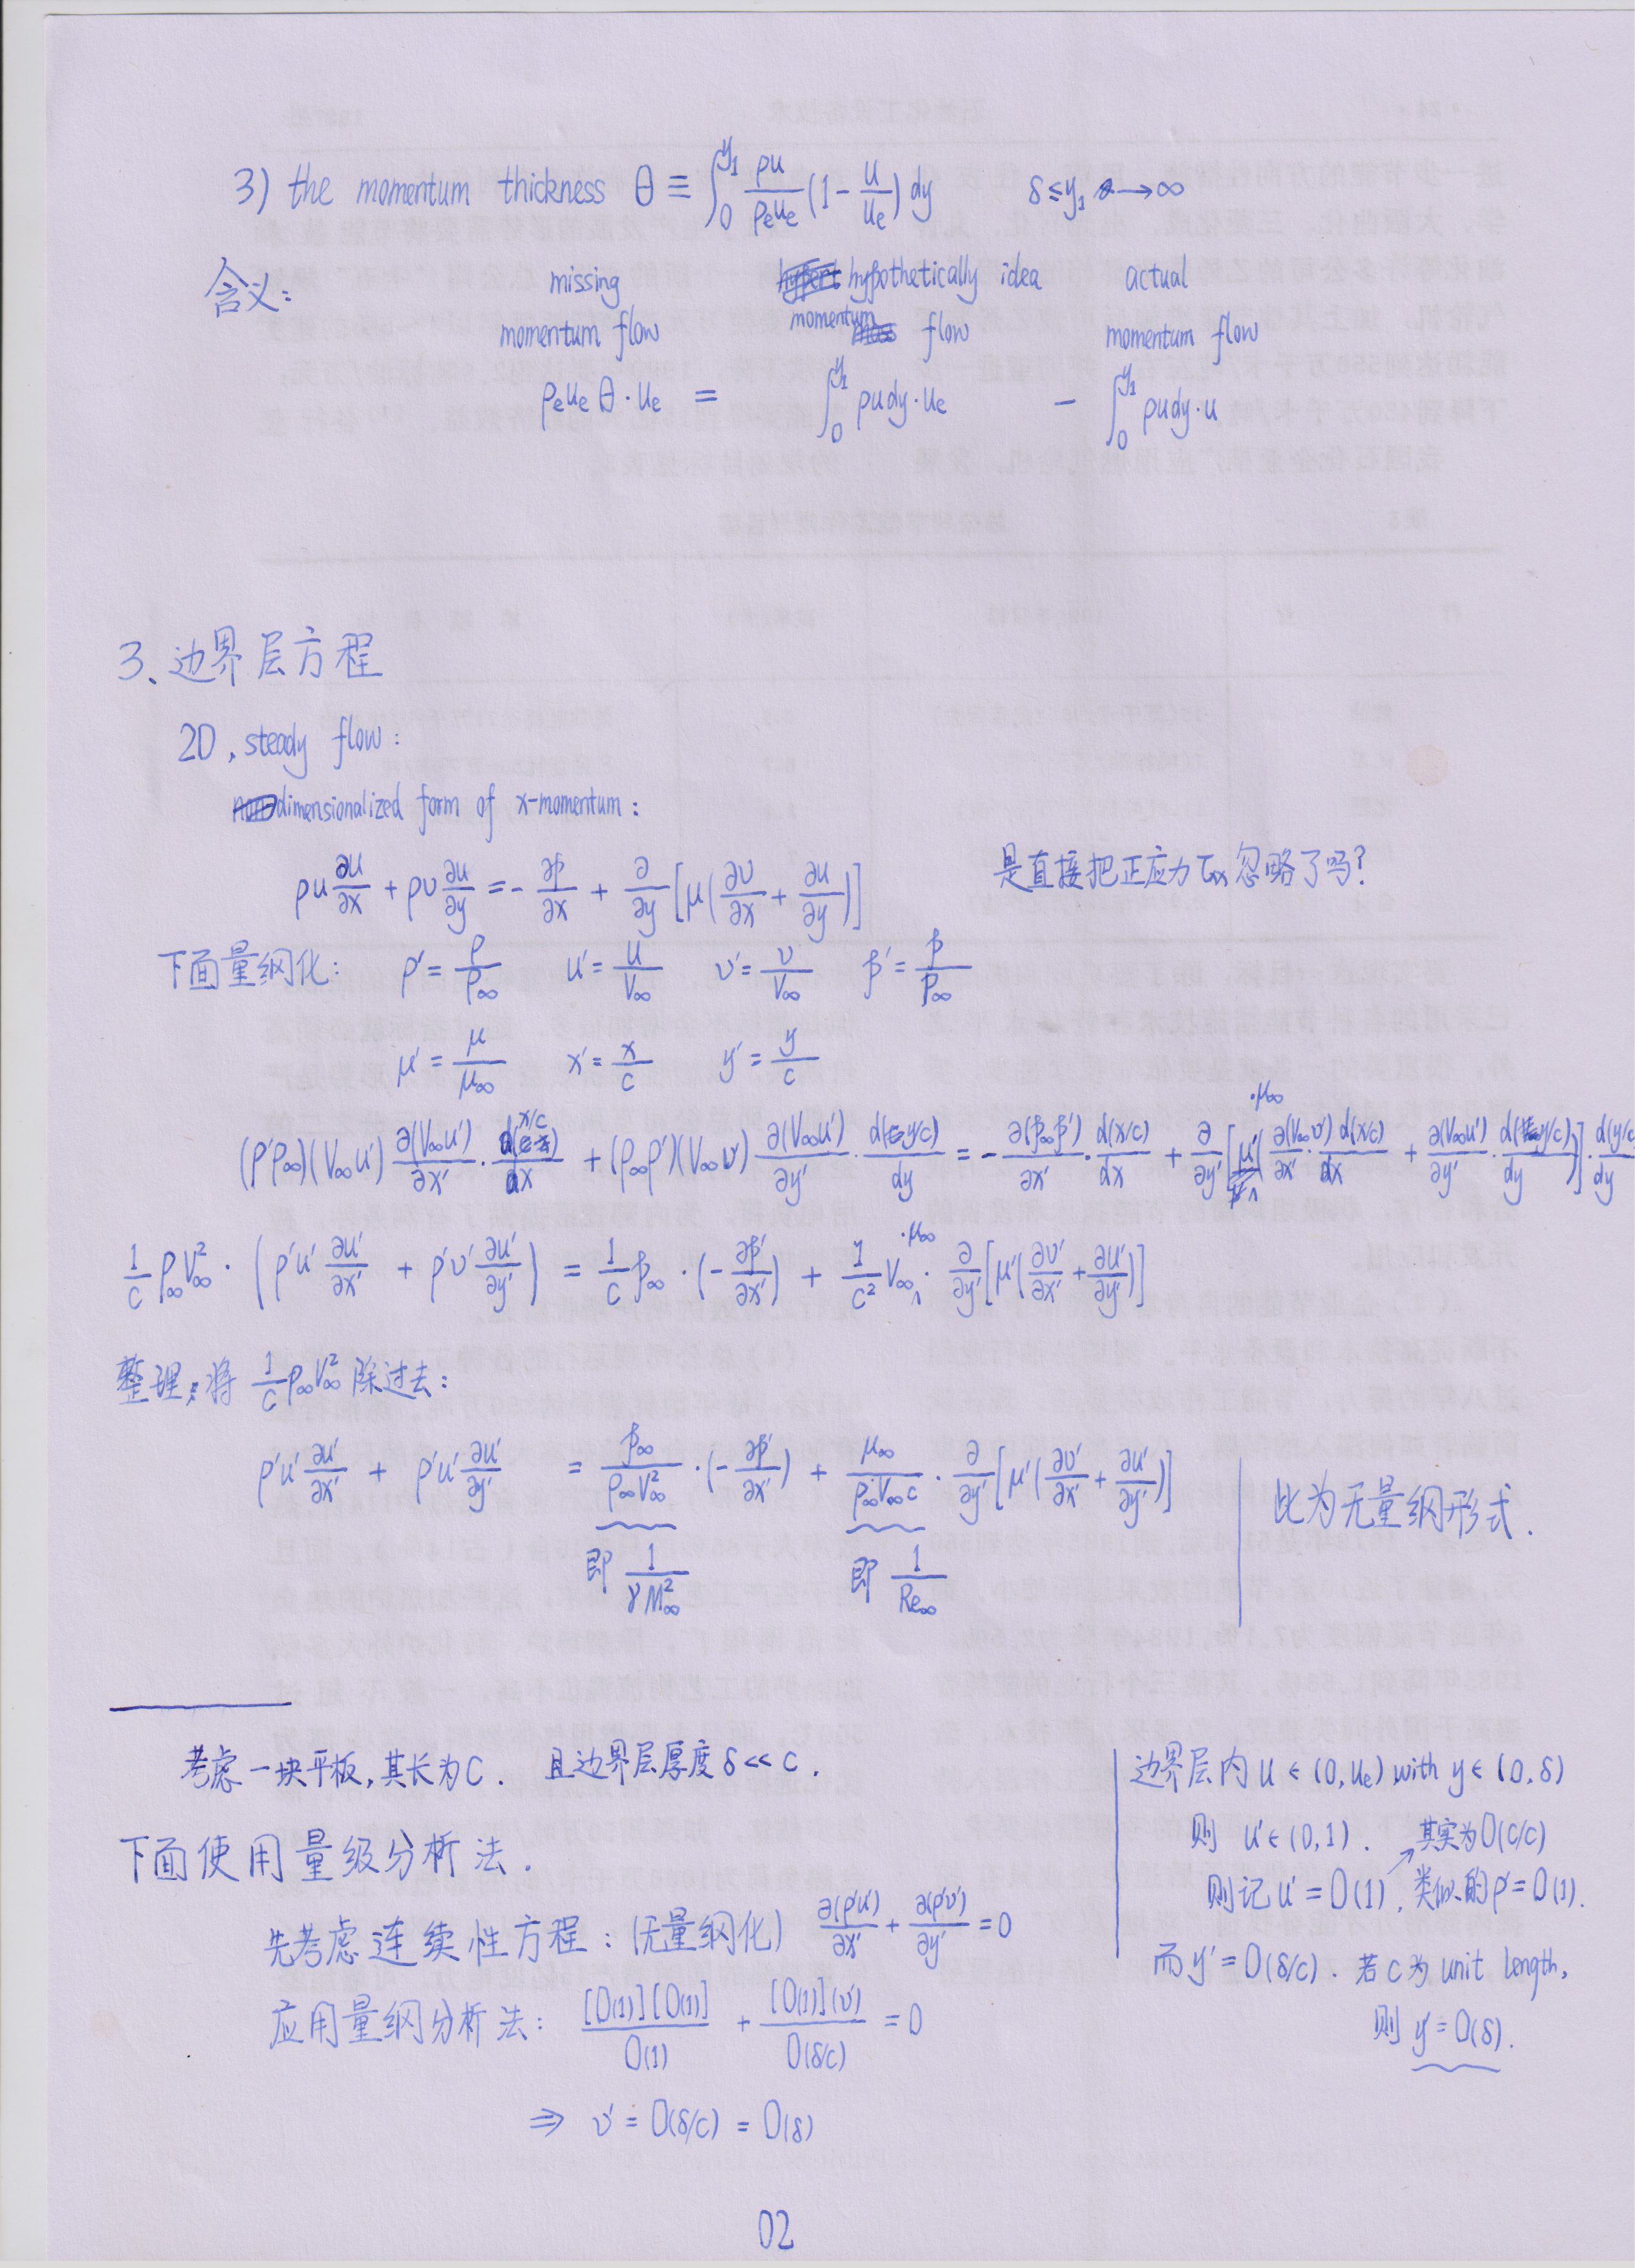 3) the momentum thickness θ ≡ ∫₀^{y₁} ρu/(ρₑuₑ) (1 - u/uₑ) dy    δ ≤ y₁ → ∞
含义:    missing    hypothetically idea    actual
momentum flow    momentum flow    momentum flow
ρₑuₑθ · uₑ = ∫₀^{y₁} ρudy · uₑ - ∫₀^{y₁} ρudy · u
3、边界层方程
2D, steady flow:
dimensionalized form of x-momentum:
ρu ∂u/∂x + ρv ∂u/∂y = - ∂p/∂x + ∂/∂y [μ(∂v/∂x + ∂u/∂y)]    是直接把正应力τxx忽略了吗?
下面量纲化:    ρ' = ρ/ρ∞    u' = u/V∞    v' = v/V∞    p' = p/p∞
μ' = μ/μ∞    x' = x/c    y' = y/c
(ρ'ρ∞)(V∞u') ∂(V∞u')/∂x' · d(x/c)/dx + (ρ∞ρ')(V∞v') ∂(V∞u')/∂y' · d(y/c)/dy = - ∂(p∞p')/∂x' · d(x/c)/dx + ∂/∂y' [μ' ·μ∞ (∂(V∞v')/∂x' · d(x/c)/dx + ∂(V∞u')/∂y' · d(y/c)/dy)] · d(y/c)/dy
1/c ρ∞V∞² · (ρ'u' ∂u'/∂x' + ρ'v' ∂u'/∂y') = 1/c p∞ · (- ∂p'/∂x') + 1/c² V∞ ·μ∞ · ∂/∂y' [μ'(∂v'/∂x' + ∂u'/∂y')]
整理:将 1/c ρ∞V∞² 除过去:
ρ'u' ∂u'/∂x' + ρ'u' ∂u'/∂y' = p∞/(ρ∞V∞²) · (- ∂p'/∂x') + μ∞/(ρ∞V∞c) · ∂/∂y' [μ'(∂v'/∂x' + ∂u'/∂y')]    比为无量纲形式.
即 1/(γM∞²)    即 1/Re∞
考虑一块平板,其长为C. 且边界层厚度δ<<c.
下面使用量级分析法.
先考虑连续性方程:(无量纲化) ∂(ρ'u')/∂x' + ∂(ρ'v')/∂y' = 0
应用量纲分析法: [O(1)][O(1)]/O(1) + [O(1)](v')/O(δ/c) = 0
⇒ v' = O(δ/c) = O(δ)
边界层内 u ∈ (0, uₑ) with y ∈ (0, δ)
则 u' ∈ (0, 1). 其实为O(c/c)
则记 u' = O(1), 类似的 ρ' = O(1).
而 y' = O(δ/c). 若c为 unit length,
则 y' = O(δ).
02